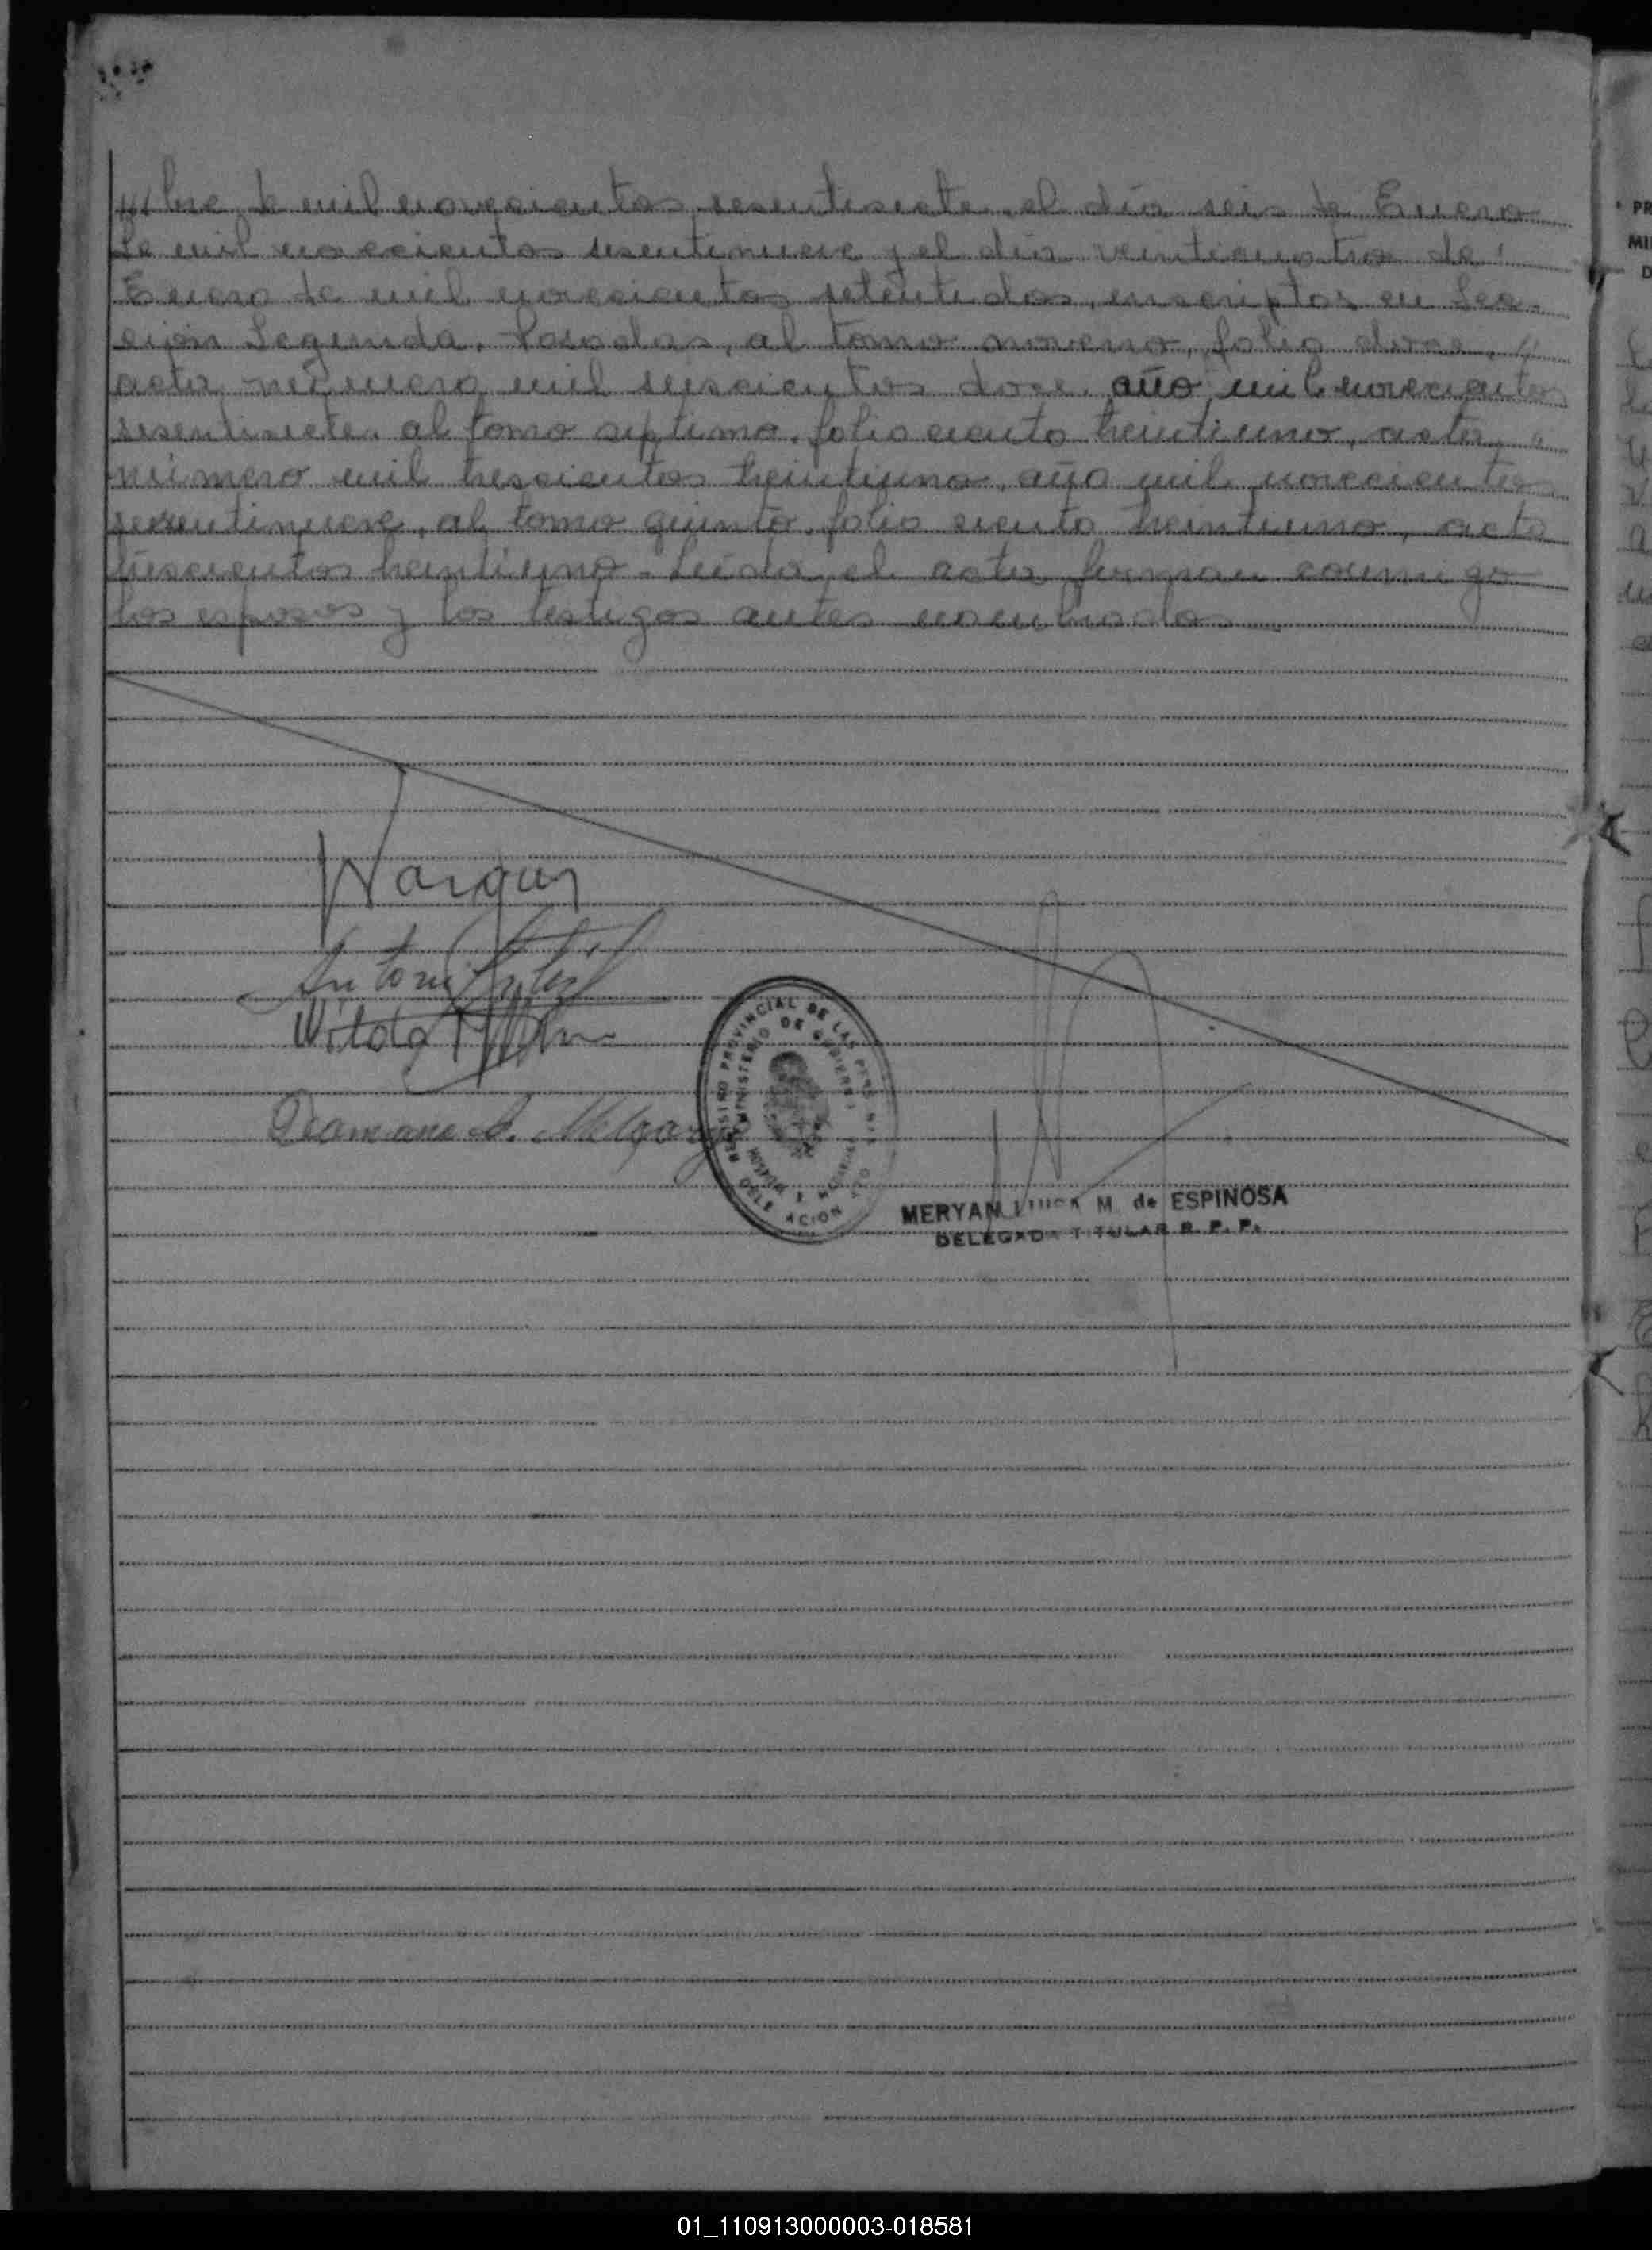 /// bre de mil novecientos sesentisiete, el día seis de Enero
de mil novecientos sesentinueve y el día veinticuatro de
Enero de mil novecientos setentidos, inscriptos en Sec-
ción Segunda, Posadas, al tomo noveno, folio doce, //
acta número mil seiscientos doce, año mil novecientos
sesentisiete, al tomo septimo, folio ciento treintiuno, acta "
número mil trescientos treintiuno, año mil novecientos
sesentinueve, al tomo quinto, folio ciento treintiuno, acta
treintiuno - Leída el acta firman conmigo
los esposos y los testigos antes nombrados
Antonio
Wilda
REGISTRO PROVINCIAL DE LAS PERSONAS
MINISTERIO DE GOBIERNO
DELEGACION
MERYAN LUISA M. de ESPINOSA
DELEGADA TITULAR R. P. P.
PR
MI
D
01_110913000003-018581